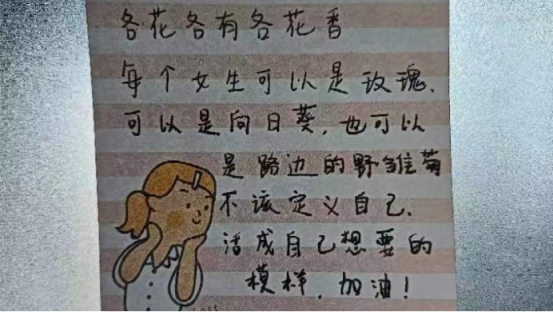 各花各有各花香
每个女生可以是玫瑰.
可以是向日葵,也可以
是路边的野雏菊
不该定义自己.
活成自己想要的
模样,加油!